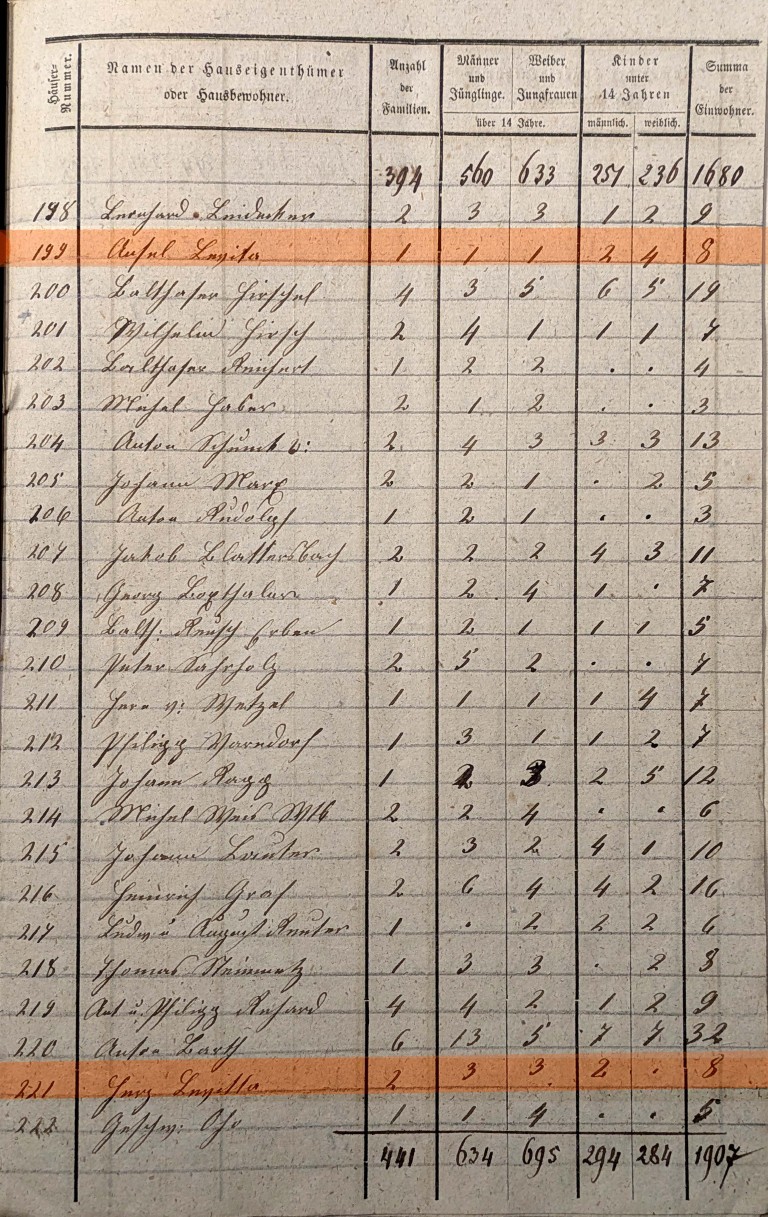 Häuser-Nummer. Namen der Hauseigenthümer oder Hausbewohner. Anzahl der Familien. Männer und Jünglinge. Weiber und Jungfrauen über 14 Jahre. Kinder unter 14 Jahren männlich. weiblich. Summa der Einwohner.
394 560 633 251 236 1680
198 Bernhard Leidecker 2 3 3 1 2 9
199 Ansel Levita 1 1 1 2 4 8
200 Balthaser Hirschel 4 3 5 6 5 19
201 Wilhelm Hirsch 2 4 1 1 1 7
202 Balthaser Reichert 1 2 2 . . 4
203 Michel Haber 2 1 2 . . 3
204 Anton Schunck 2 4 3 3 3 13
205 Johann Marx 2 2 1 . 2 5
206 Anton Rudolph 1 2 1 . . 3
207 Jakob Blattersbach 2 2 2 4 3 11
208 Georg Boxthaler 1 2 4 1 . 7
209 Balth: Reusch Erben 1 2 1 1 1 5
210 Peter Sahrholz 2 5 2 . . 7
211 Herr v: Wetzel 1 1 1 1 4 7
212 Philipp Varndorf 1 3 1 1 2 7
213 Johann Rapp 1 2 3 2 5 12
214 Michel Weis Wtb 2 2 4 . . 6
215 Johann Lauter 2 3 2 4 1 10
216 Heinrich Graf 2 6 4 4 2 16
217 Ludw u August Reuter 1 . 2 2 2 6
218 Thomas Steinmetz 1 3 3 . 2 8
219 Ant u. Philipp Richard 4 4 2 1 2 9
220 Anton Barth 6 13 5 7 7 32
221 Herz Levitta 2 3 3 2 . 8
222 Geschw: Ohr 1 1 4 . . 5
441 634 695 294 284 1907